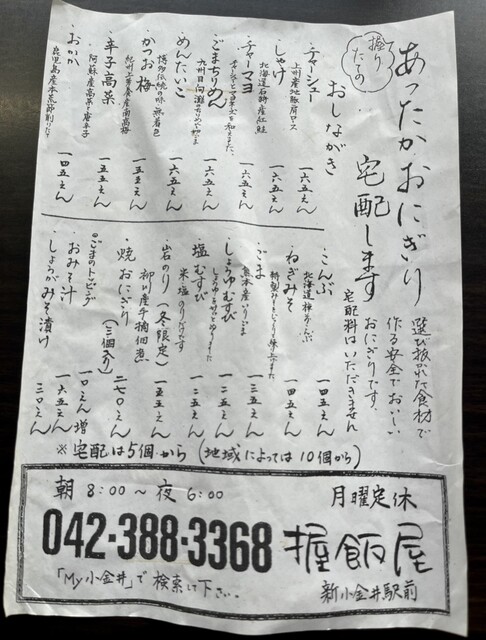 握りたての
あったかおにぎり
宅配します
選び抜かれた食材で
作る安全でおいしい
おにぎりです。
宅配料はいただきません
おしながき
・チャーシュー 一六五えん
上州産地豚肩ロース
・しゃけ 一六五えん
北海道石狩産紅鮭
・チャーマヨ 一六五えん
チャーシューとマヨネーズを和えました。
・ごまちりめん 一六五えん
九州日向灘のちりめんで
・めんたいこ 一六五えん
博多伝統の味 無着色
・かつお梅 一五五えん
紀州上等 南高梅
・辛子高菜 一五五えん
阿蘇産高菜・唐辛子
・おかか 一四五えん
鹿児島産本荒節削りたて
・こんぶ 一四五えん
北海道
・ねぎみそ 一四五えん
特製みそをじっくり練上ました。
・ごま 一三五えん
熊本産いりごま
・しょうゆむすび 一二五えん
・塩むすび 一二五えん
米塩のりだけです
・岩のり(冬限定) 一五五えん
柳川産手摘佃煮
・焼おにぎり(三個入り) 二七〇えん
◎ごまのトッピング 一〇えん増
・おみそ汁 一六五えん
・しょうがみそ漬け 三〇えん
※宅配は5個から(地域によっては10個から)
朝 8:00〜夜6:00
月曜定休
042-388-3368
握飯屋
「My小金井」で検索して下さい。
新小金井駅前